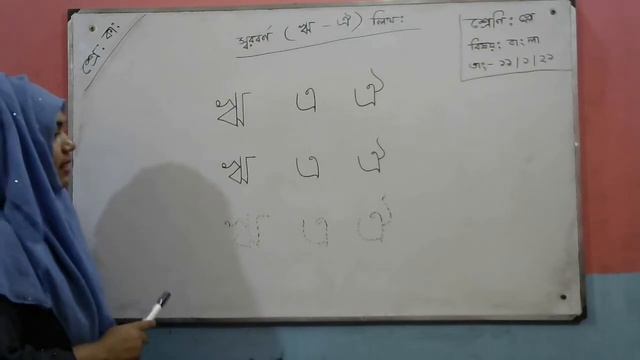 শ্রে: কা:
স্বরবর্ণ (ঋ - ঐ) লিখ:
শ্রেণি: প্লে
বিষয়: বাংলা
তাং- ২২/১/২২
ঋ এ ঐ
ঋ এ ঐ
ঋ এ ঐ